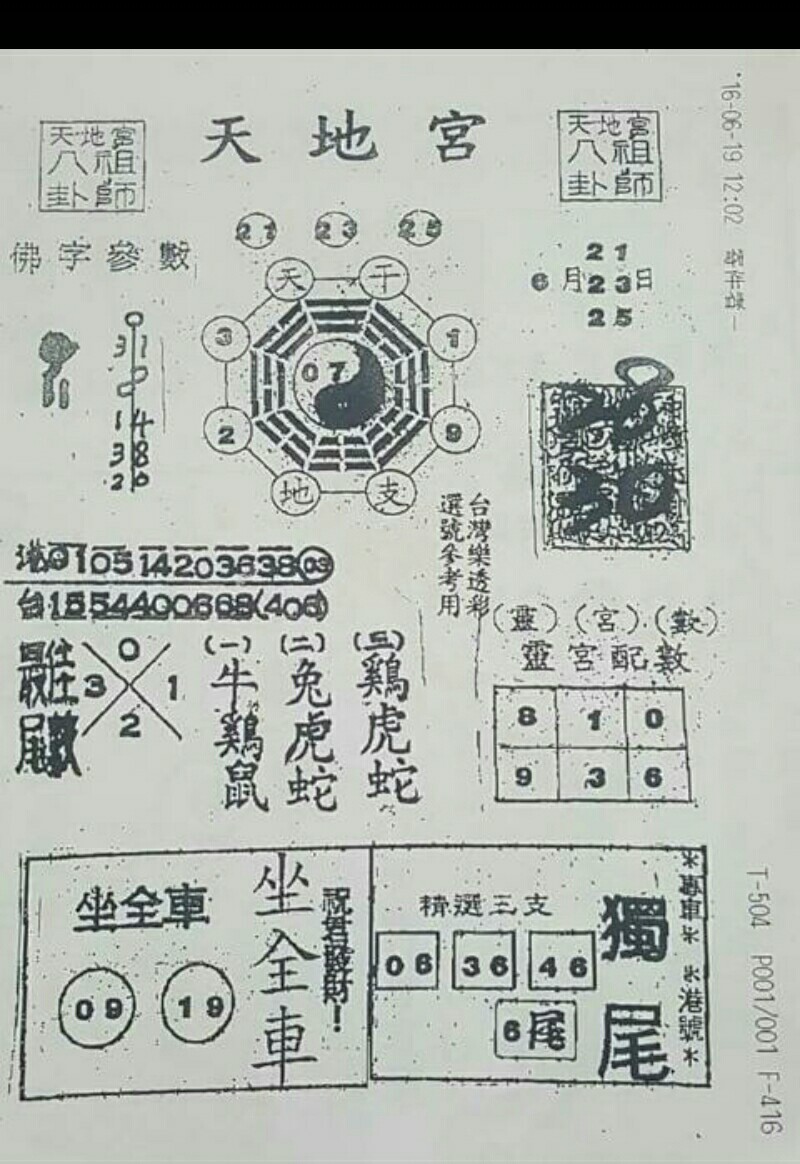 '16-06-19 12:02
天地宮
八祖
卦師
天地宮
天地宮
八祖
卦師
佛字參數
21 23 25
21
6月23日
25
天 干
3 1
07
2 9
地 支
0
31
14
38
20
30
台灣樂透彩
選號參考用
港 01 05 14 20 36 38 03
台 15 54 40 06 68 (406)
最佳
尾數
0
3 1
2
(一) (二) (三)
牛 兔 鷄
鷄 虎 虎
鼠 蛇 蛇
(靈) (宮) (數)
靈宮配數
8 1 0
9 3 6
坐全車
09 19
坐全車
祝君發財!
精選三支
06 36 46
6尾
獨尾
*專車* *港號*
T-504 P001/001 F-416